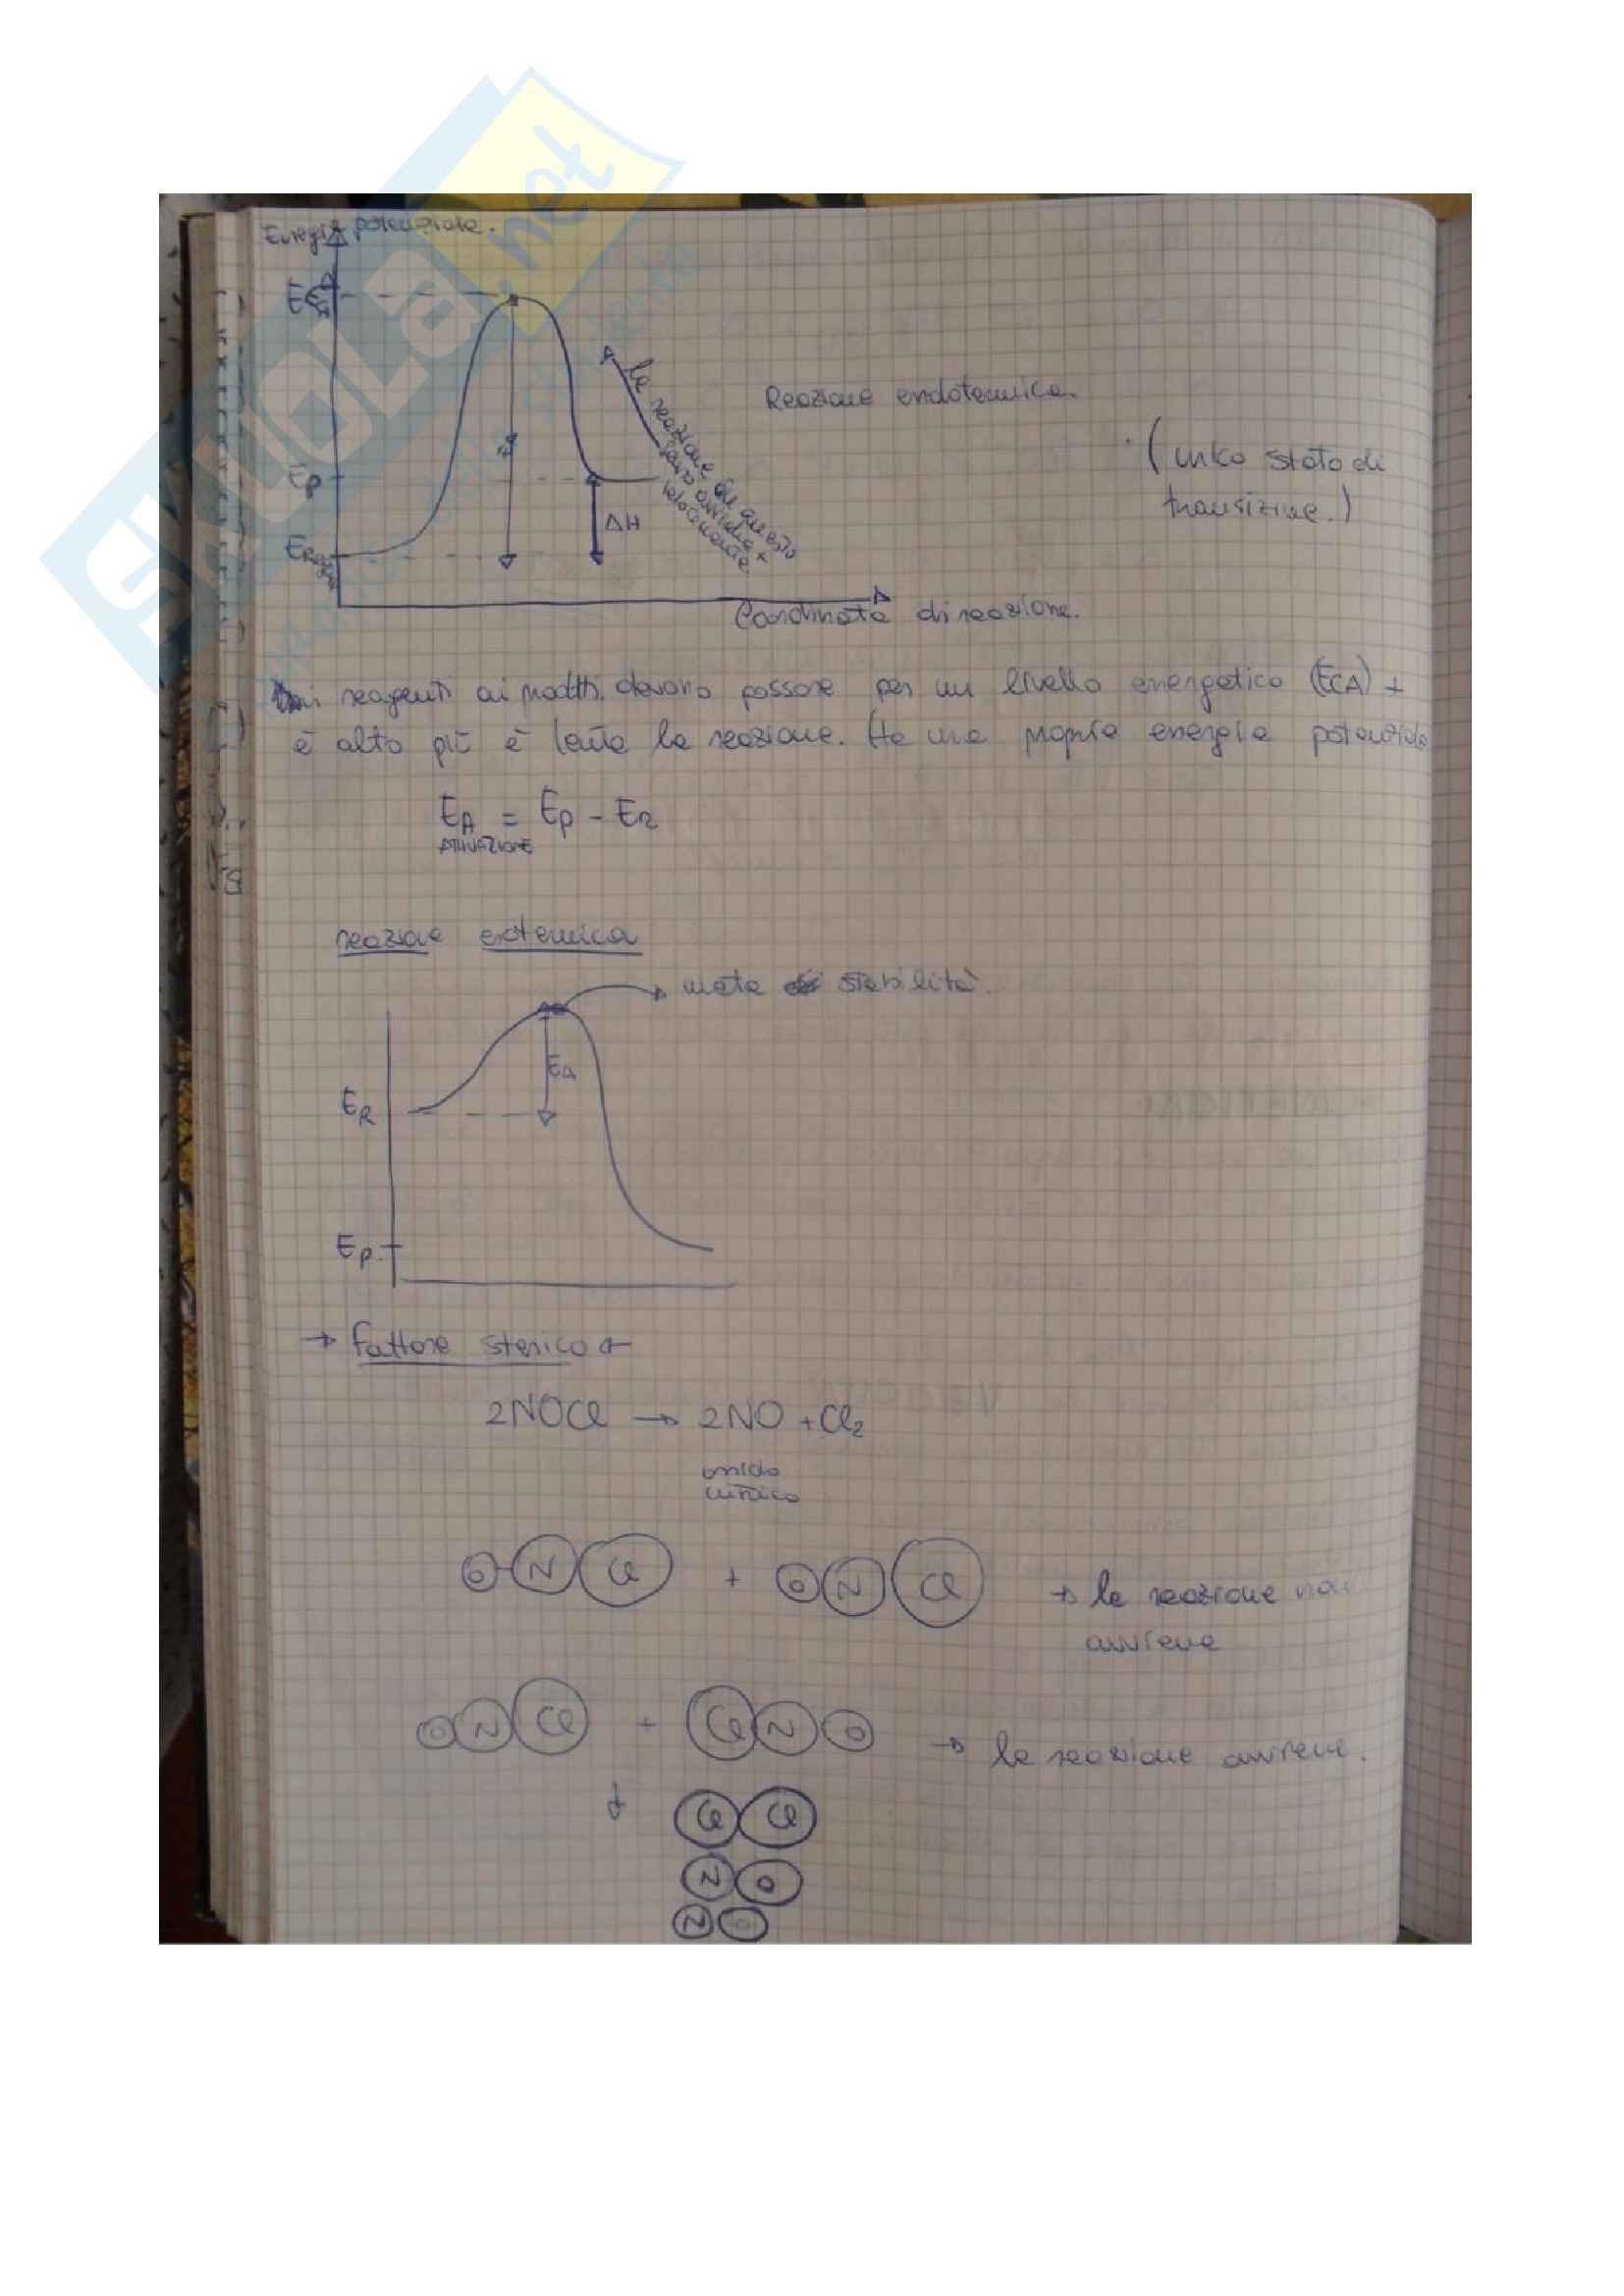 Energia potenziale.
E
Reazione endotermica.
la reazione in questo
senso avviene +
velocemente
(unico stato di
transizione.)
Ep
ΔH
EReag
Coordinata di reazione.
reagenti ai prodotti devono passare per un livello energetico (ECA) +
è alto più è lenta la reazione. Ha una propria energia potenziale
EA = Ep - ER
ATTIVAZIONE
reazione esotermica
meta stabilità.
EA
ER
Ep
→ fattore sterico ←
2NOCl → 2NO + Cl2
ossido
nitrico
O N Cl + O N Cl → la reazione non
avviene
O N Cl + Cl N O → la reazione avviene.
Cl Cl
N O
N O
SKUOLA.net